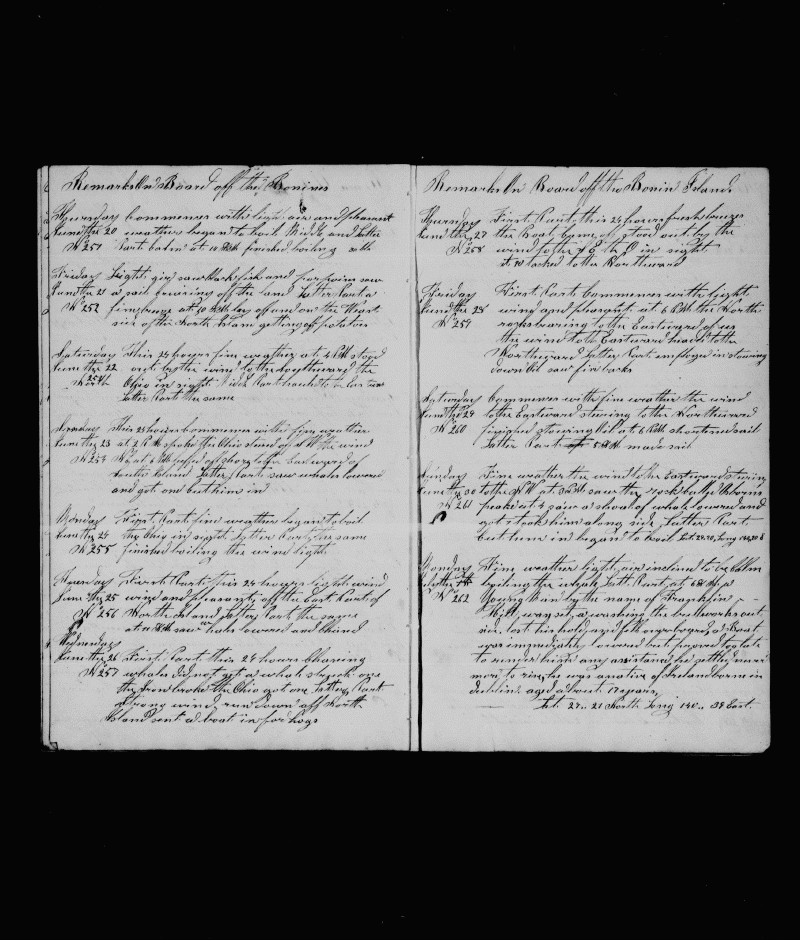 Remarks On Board off the Bonines
Thursday Commences with light airs and pleasant
June the 20 weather began to boil Middle and Latter
No 251 Part boilin at 10 PM finished boiling
Friday Light airs saw black fish and porpoises saw
June the 21 a sail cruising off the land Latter Part a
No 252 fine breeze at PM lay off and on the West
side of the North Island getting off potatoes
Saturday This 24 hours fine weather at 4 PM stood
June the 22 out by the wind to the southward the
Ohio in sight Middle Part
Latter Part the same
Sunday This 24 hours commences with fine weather
June the 23 at 2 PM spoke the Ohio stood of S W the wind
No 254 W at PM off shore to the eastward of
South Island Latter Part saw whales lowered
and got one but him in
Monday First Part fine weather began to boil
June the 24 the Ohio in sight Latter Part the same
No 255 finished boiling the wind light
Tuesday First Part this 24 hours light wind
June the 25 wind and pleasant off the East Part of
No 256 North Island Latter Part the same
at 11 AM saw whales lowered and
Wednesday
June the 26 First Part this 24 hours Chasing
No 257 whales did not get a whale struck one
the iron broke the Ohio got one Latter Part
strong wind run down off North
Island sent a boat in for hogs
Remarks On Board off the Bonin Islands
Thursday First Part this 24 hours fresh breeze
June the 27 the Boat came of stood out by the
No 258 wind to the N E the O in sight
at 10 tacked to the Northward
Friday First Part Commences with light
June the 28 wind and pleasant at 6 PM the North
No 259 rocks bearing to the Eastward of us
the wind to the Eastward head to the
Northward Latter Part employed in stowing
down Oil saw fin backs
Saturday Commences with fine weather the wind
June the 29 to the Eastward steering to the Northward
No 260 finished stowing Oil at 6 PM shortened sail
Latter Part 5 AM made sail
Sunday Fine weather the wind to the Eastward steering
June the 30 to the N W at 3 PM saw the rock called
No 261 peake at 4 saw a shoal of whale lowered and
got 1 took him along side Latter Part
but him in began to boil
Monday Fine weather light airs inclined to be Calm
July the 1st boiling the whale Latt Part at 6 AM a
No 262 Young Man by the name of Franklin
Hill was set a washing the bullworks out
side lost his hold and fell overboard, a Boat
was immediately lowered but proved too late
to render him any assistance he settled never
more to rise he was a native of Ireland born in
Dublin aged about 17 years
Lat 27.. 21 North Long 140.. 38 East.